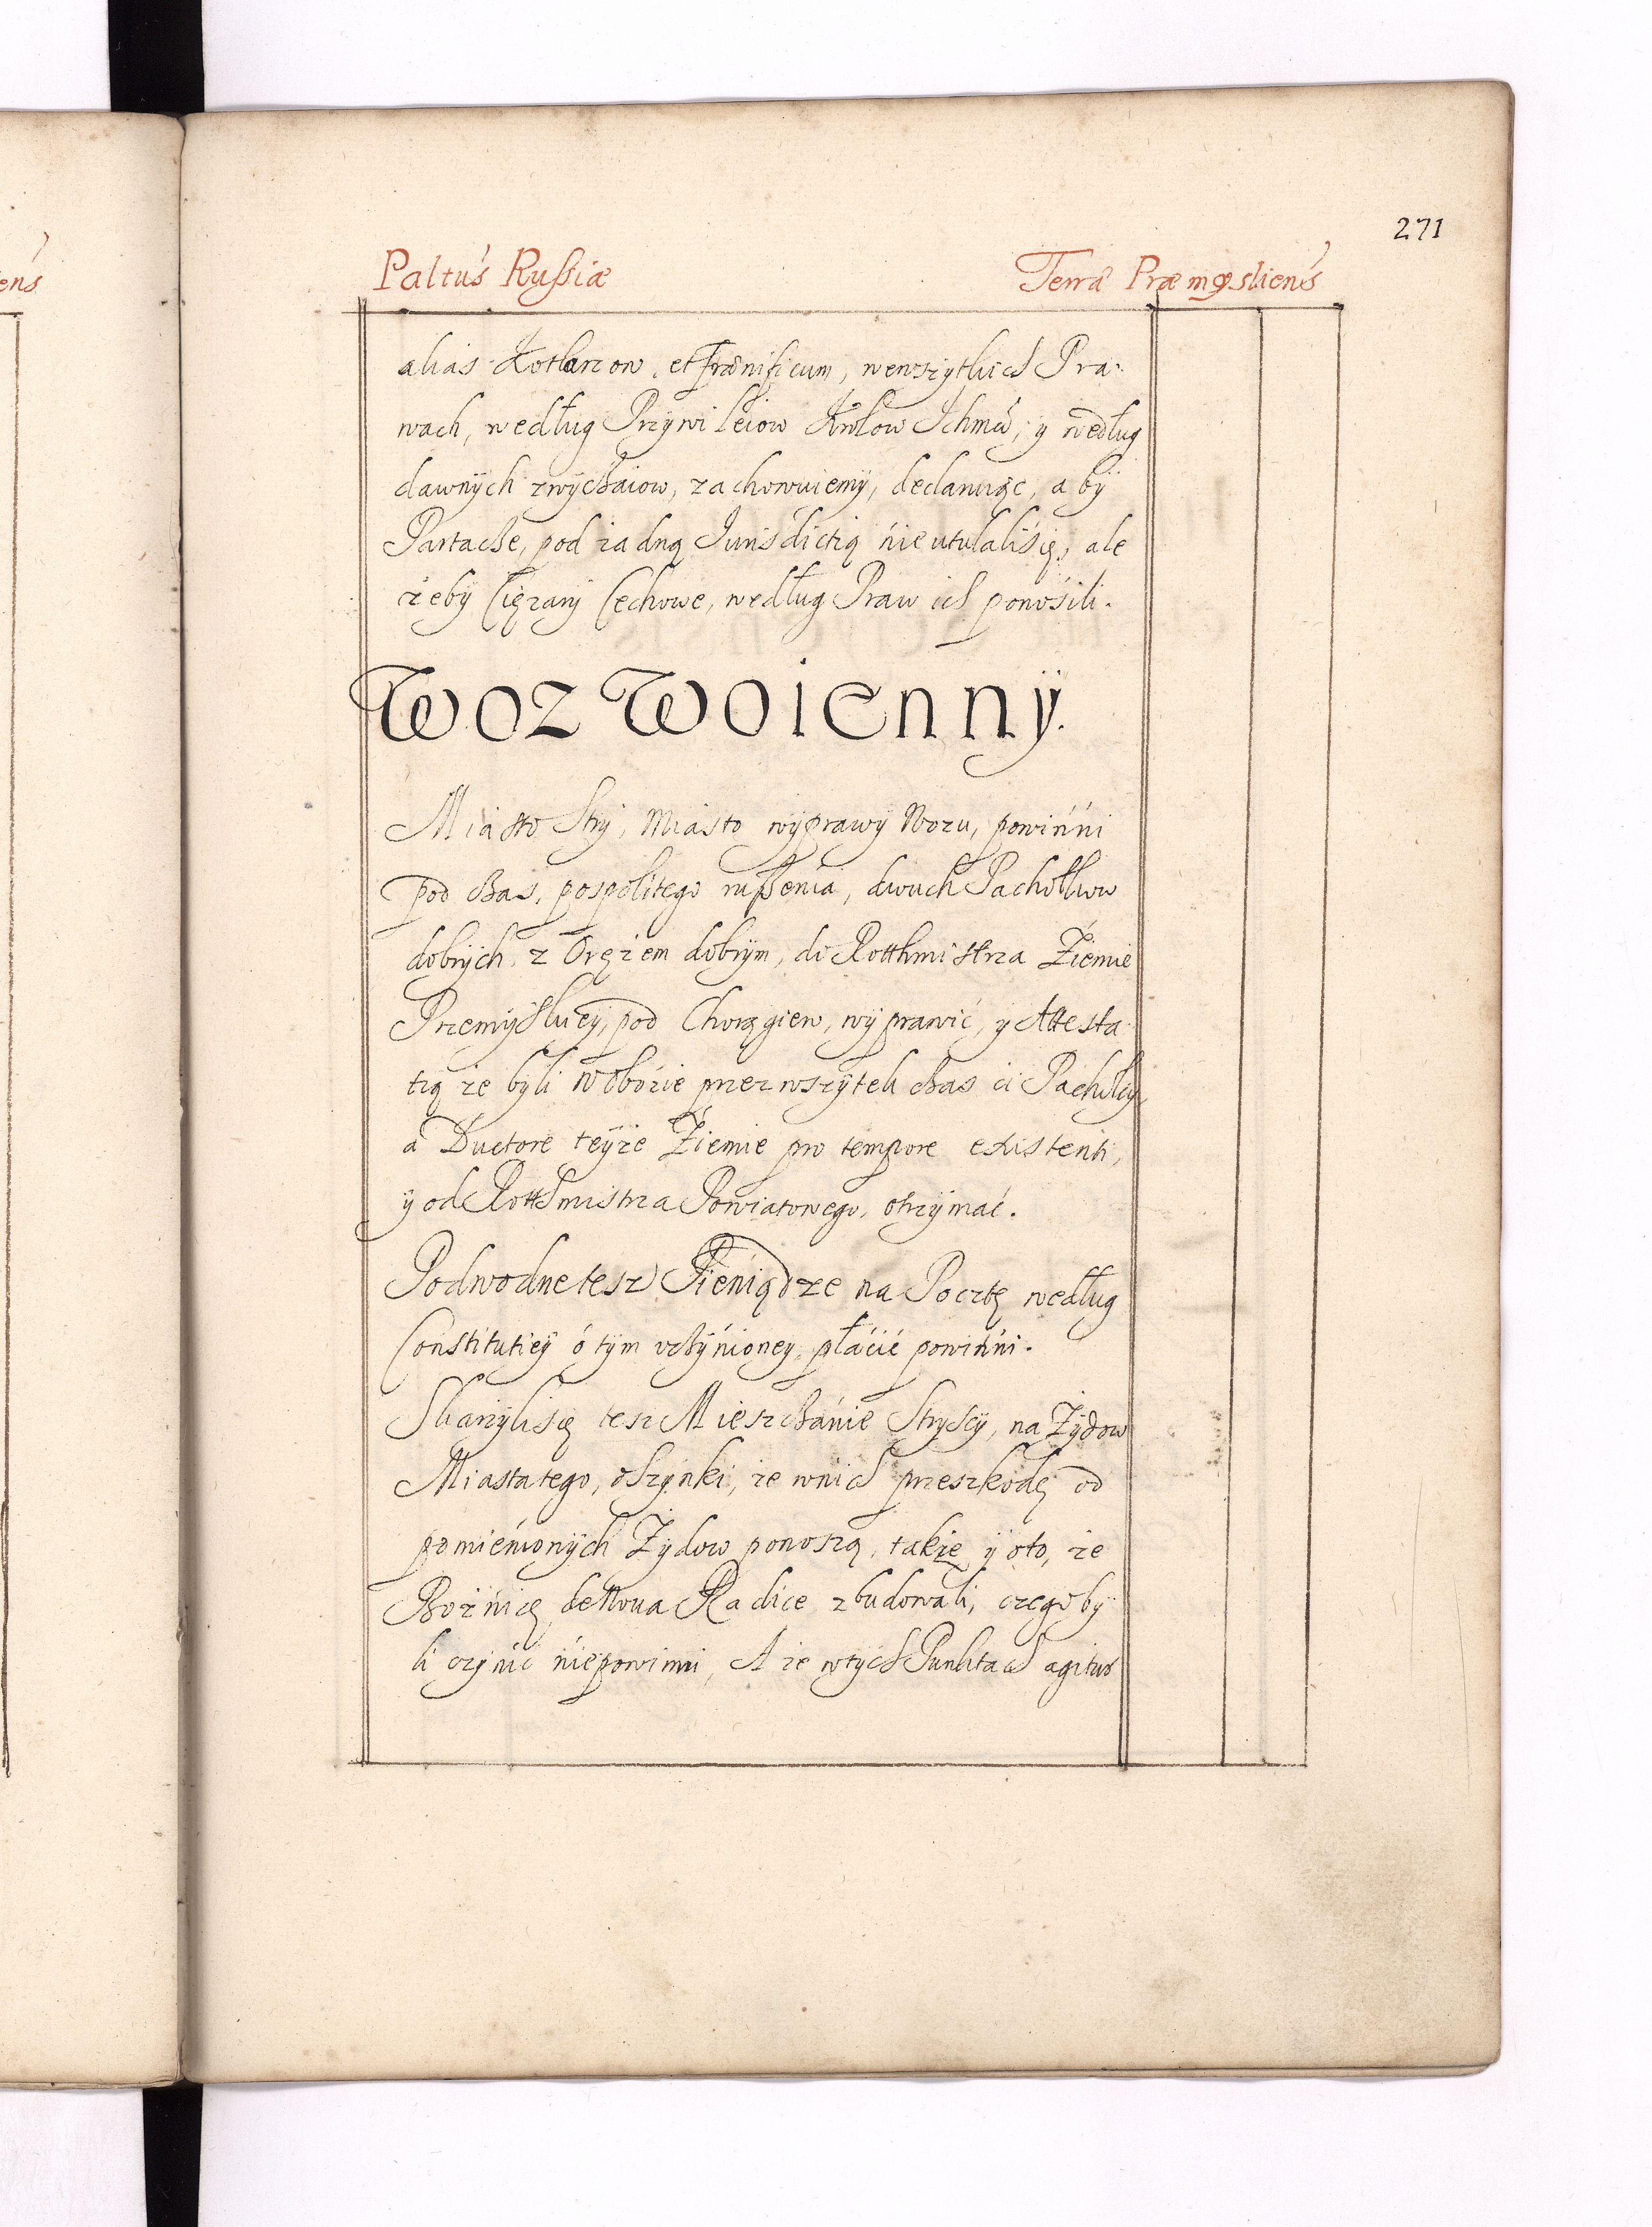 271
Paltus Russiæ Terra Præmysliens
alias Kotlarzow, et frænificum, wewszytkich Pra-
wach, według Przywileiow Krolow Ichmċ, y według
dawnÿch zwyczaiow, zachowuiemÿ, declaruiąc, abÿ
Partacze, pod żadną Iurisdictią nie utulali się, ale
żebÿ Ciężarÿ Cechowe, według Praw ich ponosili.
Woz Woiennÿ.
Miasto Stryi, miasto wÿprawÿ Wozu, powinni
pod czas, pospolitego ruszenia, dwuch Pachołkow
dobrÿch, z Orężem dobrÿm, do Rotthmistrza Ziemie
Przemÿskiey, pod Chorągiew, wÿprawić, y Attesta
tią że bÿli w obozie przez wszÿtek czas ci Pachołcy,
a Ductore teÿże Ziemie pro tempore existenti,
ÿ od Rotthmistrza Powiatowego, otrzÿmać.
Podwodne tesz Pieniądze na Pocztę według
Constitutieÿ o tÿm uczÿnioney, płacić powinni.
Skarżÿli się tesz Mieszczanie Stryscÿ, na Zÿdow
Miasta tego, o szÿnki, że w nich przeszkodę od
pomienionÿch Zÿdow ponoszą, także ÿ oto, że
Bożnicę de Nova Radice zbudowali, czego bÿ
li czÿnić niepowinni, A że wtÿch Punktach agitur